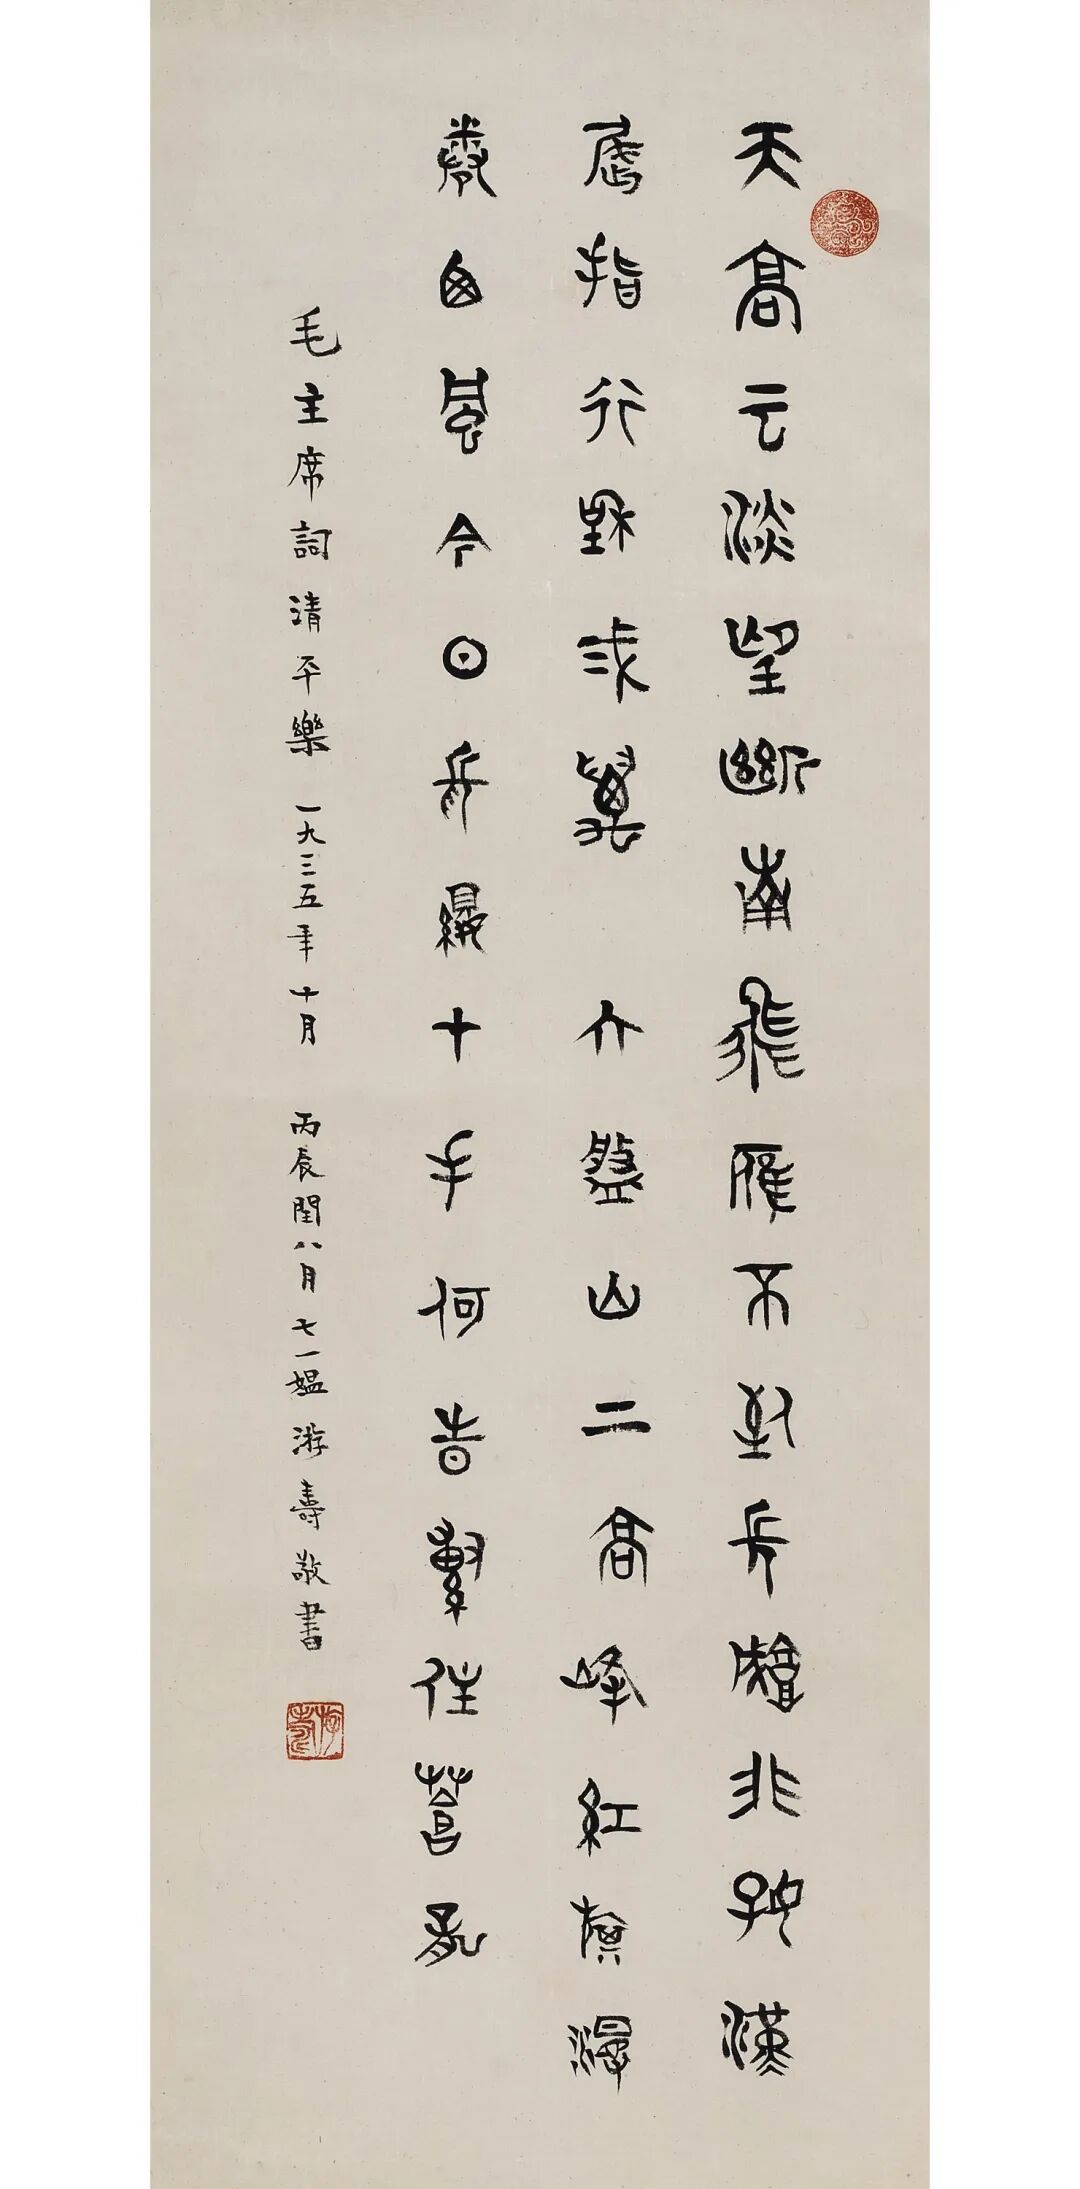 天高云淡望斷南飛雁不到長城非好漢
屈指行程弍萬 六盤山上高峰紅旗漫
卷西風今日長纓在手何時縛住蒼龍
毛主席詞清平樂 一九三五年十月 丙辰閏八月七一媪游壽敬書
游壽